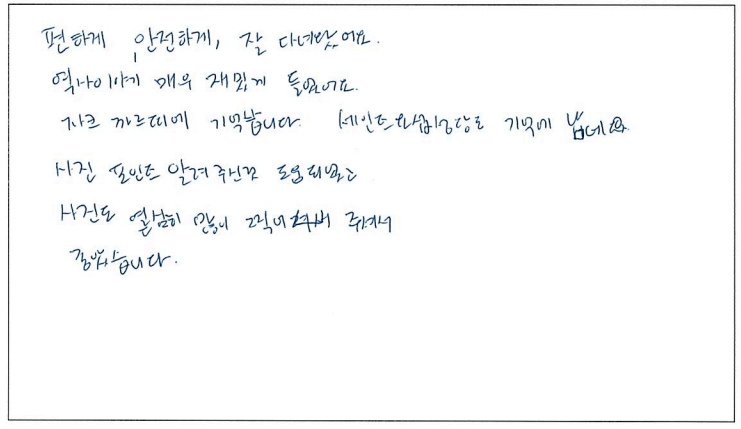 편하게 안전하게, 잘 다녀왔어요.
역사이야기 매우 재밌게 들었어요.
자크 까르띠에 기억납니다. 세인트 요셉성당도 기억에 남네요
사진 포인트 알려주신것 도움되었고
사진도 열심히 많이 찍어 주셔서
좋았습니다.